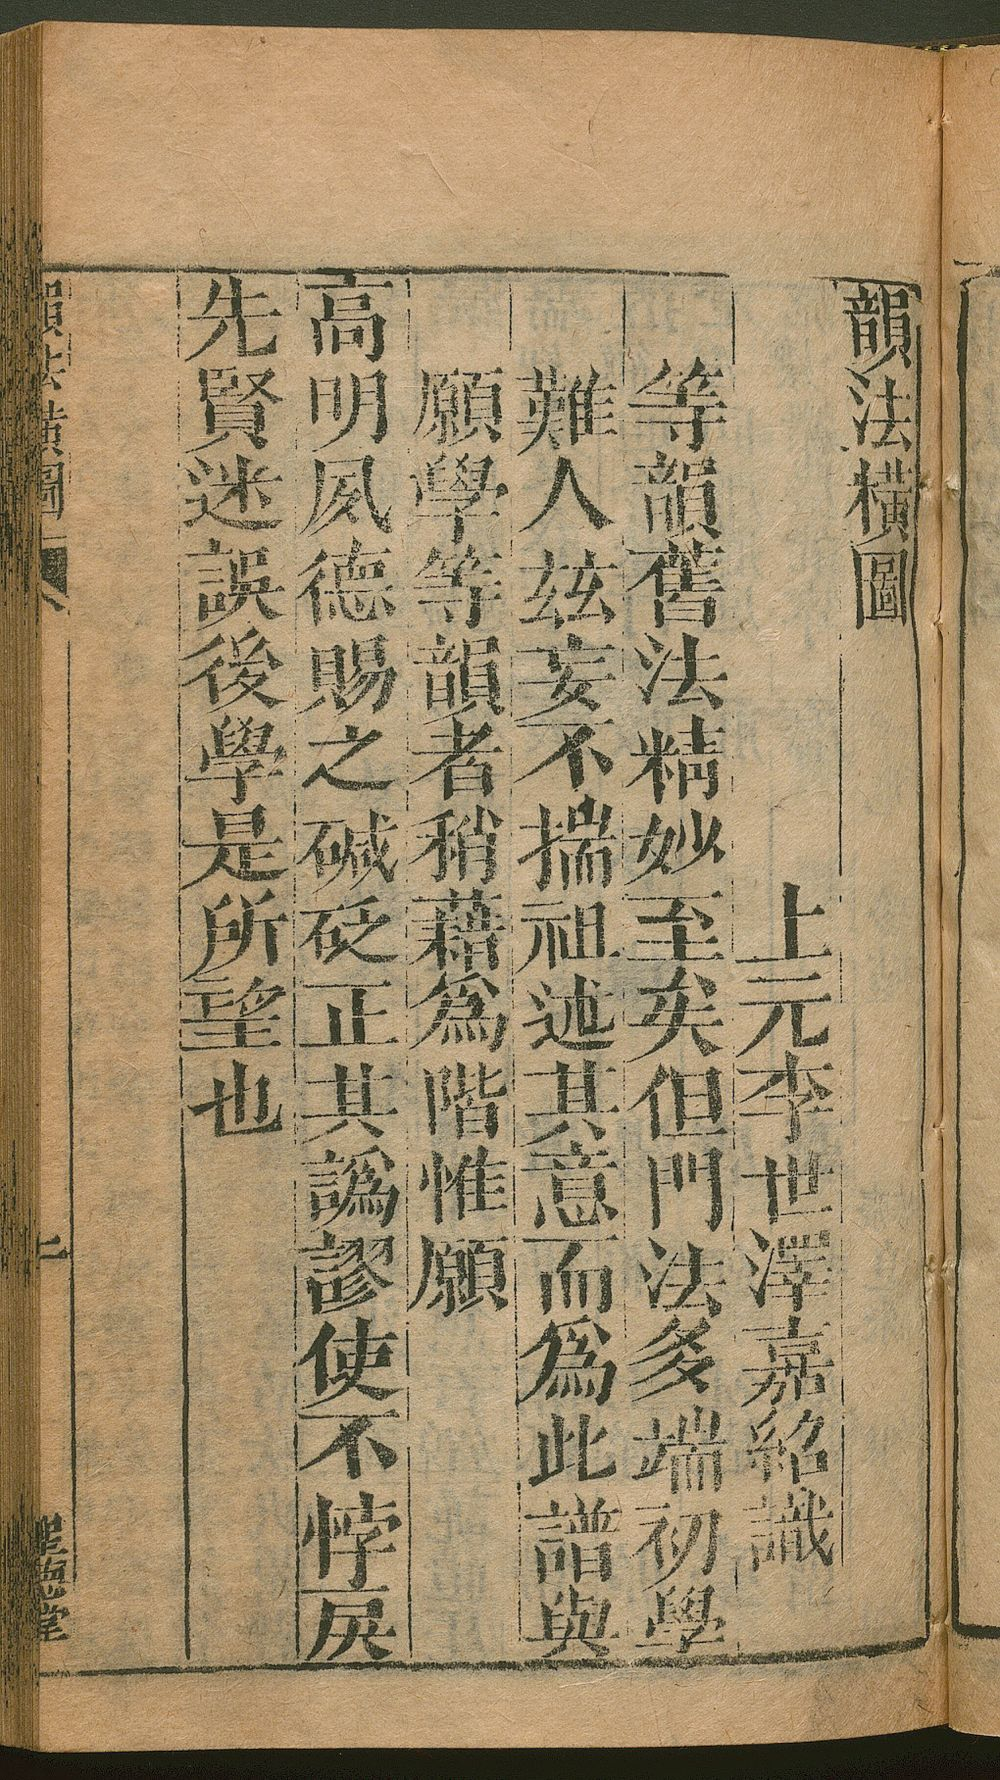 韻法橫圖
上元李世澤嘉紹識
等韻舊法精妙至矣但門法多端初學
難人玆妄不揣祖述其意而爲此譜與
願學等韻者稍藉爲階惟願
高明夙德賜之碱砭正其譌謬使不悖戾
先賢迷誤後學是所望也
韻法橫圖